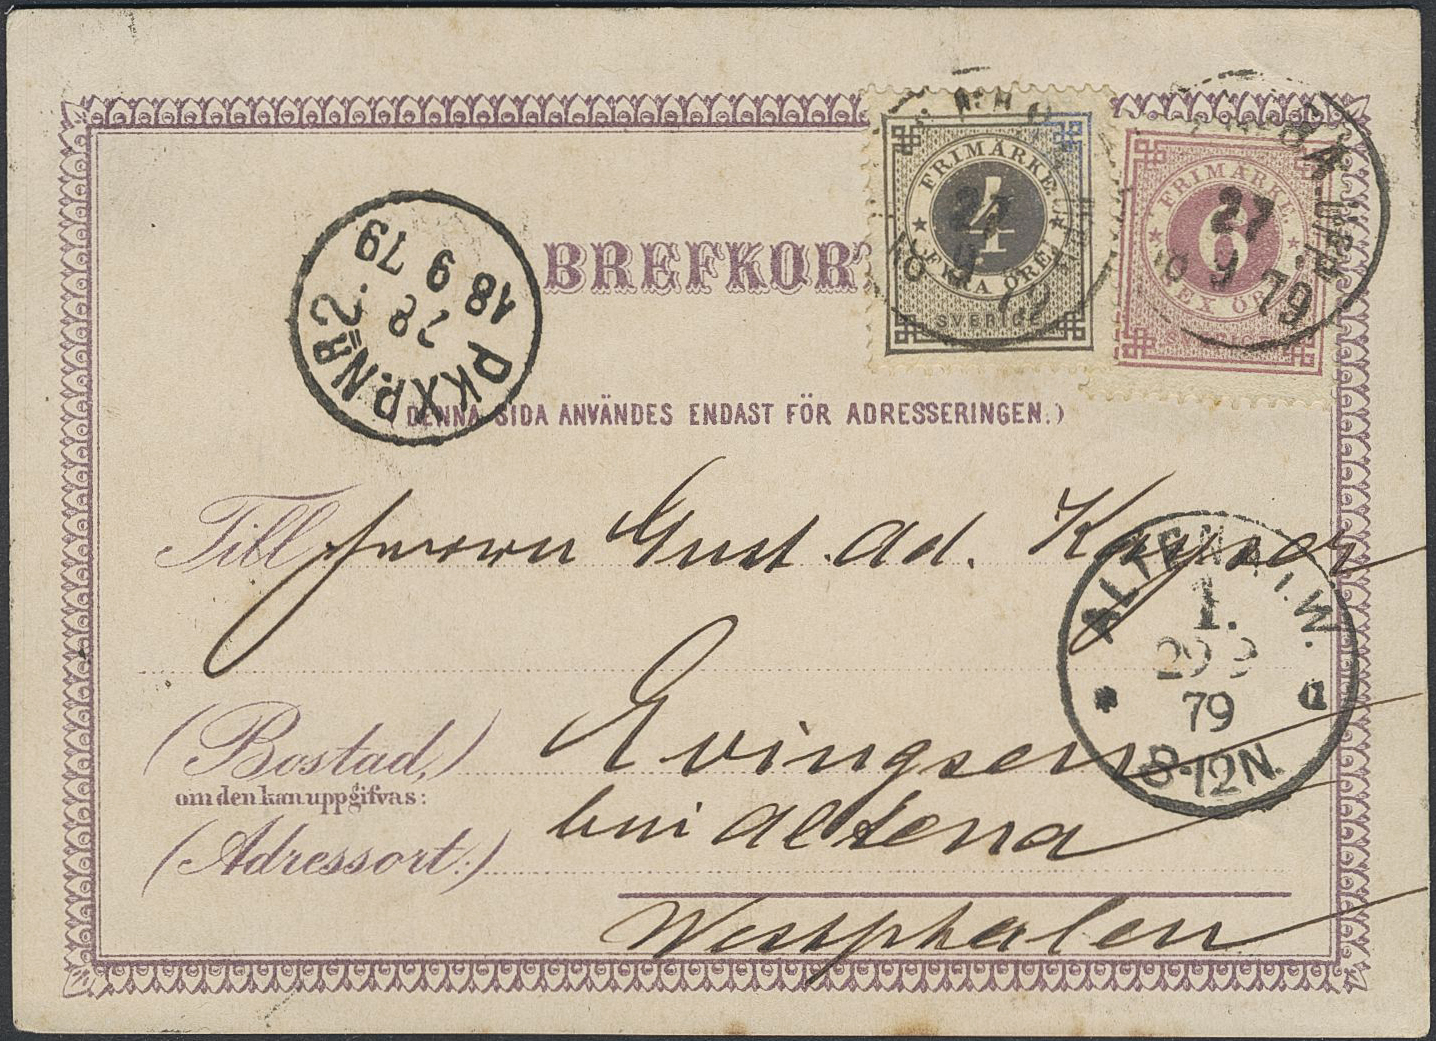 BREFKORT
FRIMÄRKE
4
FYRA ÖRE
SVERIGE
27
9
79
FRIMÄRKE
6
SEX ÖRE
SVERIGE
27
9 79
18 9 79
28
PKXP. Nr 2.
(DENNA SIDA ANVÄNDES ENDAST FÖR ADRESSERINGEN.)
Till Herrn Gust. Ad. Kayser
ALTENA I.W.
1.
29 9
79
8-12N.
(Bostad,) Evingsen
om den kan uppgifvas:
(Adressort:) bei Altena
Westphalen